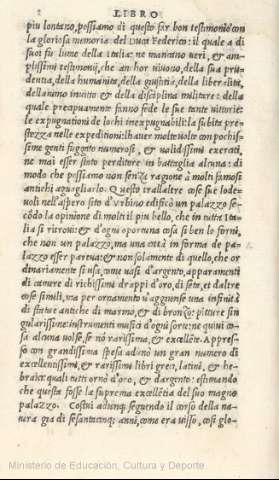 LIBRO
piu lontano, possiamo di questo far bon testimonio con
la gloriosa memoria del Duca Federico: il quale a di
suoi fu lume della Italia: ne mancano ueri, & am
plissimi testimonij, che anhor uiuono, della sua pru
dentia, della humanita, della giustitia, della liberalita,
dell'animo inuitto & della disciplina militare: della
quale precipuamente fanno fede le sue tante uittorie:
le expugnationi de lochi inexpugnabili: la subita pre
stezza nelle expeditioni: l'hauer molte uolte con pochis
sime genti fuggato numerosi, & ualidissimi exerciti,
ne mai esser stato perditore in battaglia alcuna: di
modo che possiamo non senza ragione à molti famosi
antichi aguagliarlo. Questo tra l'altre cose sue lode-
uoli nell'aspero sito d'Vrbino edificò un palazzo se-
códo la opinione di molti il piu bello, che in tutta Ita
lia si ritroui: & d'ogni oportuna cosa si ben lo forni,
che non un palazzo, ma una città in forma de pa-
lazzo esser pareua: & non solamente di quello, che or
dinariamente si usa, come uasi d'argento, apparamenti
di camere di richissimi drappi d'oro, di seta, et d'altre
cose simili, ma per ornamento u'aggiunse una infinità
di statue antiche di marmo, & di bronzo: pitture sin
gularissime: instrumenti musici d'ogni sorte: ne quiui co
sa alcuna uolse, se nō rarissima, & excellēte. Appres-
so con grandissima spesa adunò un gran numero di
excellentissimi, & rarissimi libri greci, latini, & he-
braici: quali tutti ornò d'oro, & d'argento: estimando
che questa fosse la suprema excellētia del suo magno
palazzo. Costui adunq; seguendo il corso della na-
tura gia di sesantacinq; anni, come era uisso, cosi glo-
Ministerio de Educación, Cultura y Deporte